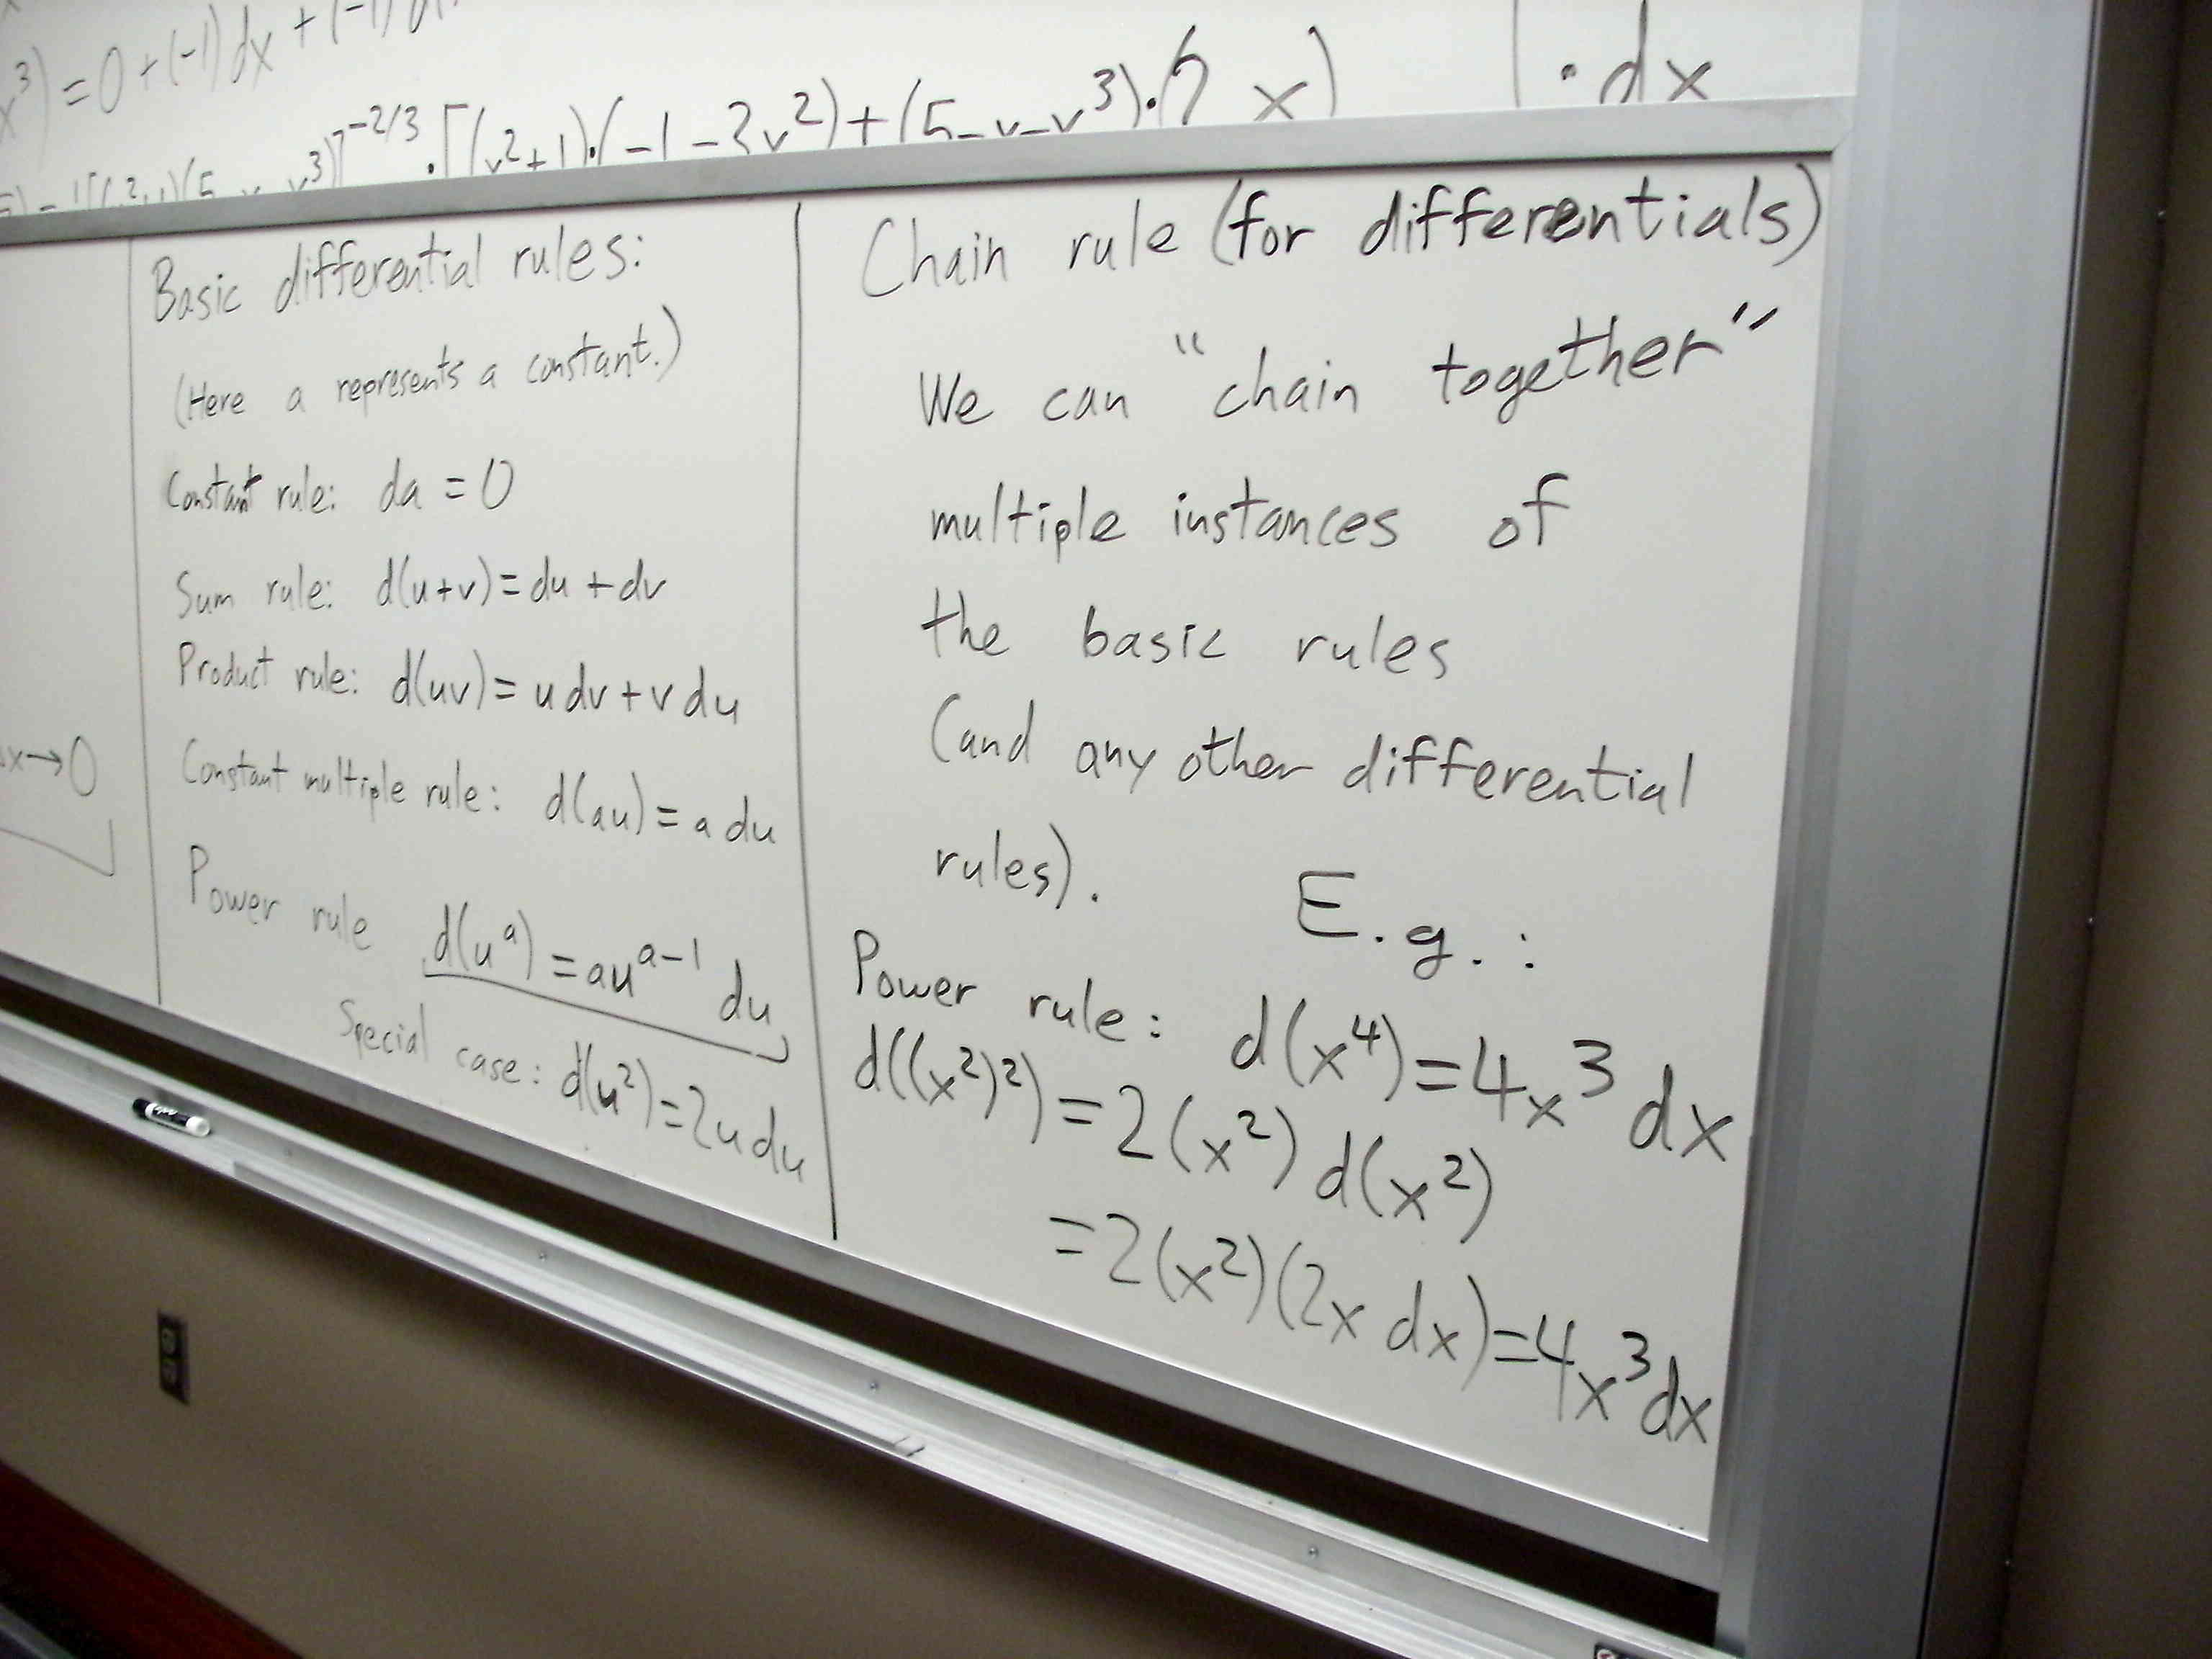 x³) = 0 + (-1) dx + (-1)
-2/3 · [(x²+1)·(-1-3x²)+(5-x-x³)· x) · dx
x→0
Basic differential rules:
(Here a represents a constant.)
Constant rule: da = 0
Sum rule: d(u+v) = du + dv
Product rule: d(uv) = u dv + v du
Constant multiple rule: d(au) = a du
Power rule d(uᵃ) = auᵃ⁻¹ du
Special case: d(u²) = 2u du
Chain rule (for differentials)
We can "chain together"
multiple instances of
the basic rules
(and any other differential
rules). E.g.:
Power rule: d(x⁴) = 4x³ dx
d((x²)²) = 2(x²) d(x²)
= 2(x²)(2x dx) = 4x³ dx